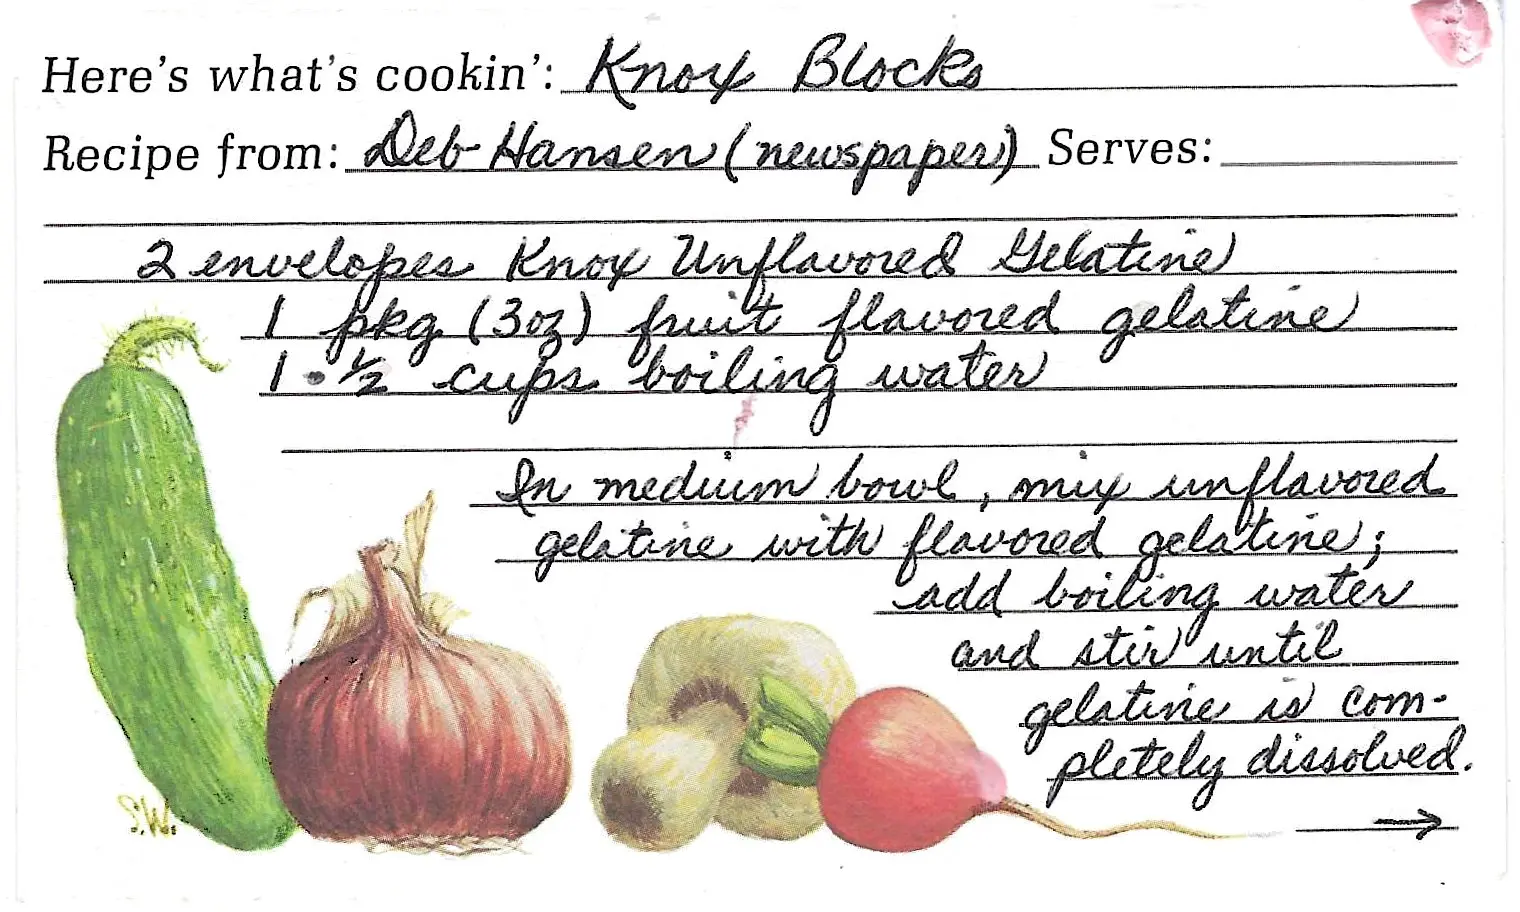 Here's what's cookin': Knox Blocks
Recipe from: Deb Hansen (newspaper) Serves:
2 envelopes Knox Unflavored Gelatine
1 pkg (3oz) fruit flavored gelatine
1 · 1/2 cups boiling water
In medium bowl, mix unflavored
gelatine with flavored gelatine;
add boiling water
and stir until
gelatine is com-
pletely dissolved.
→
S.W.